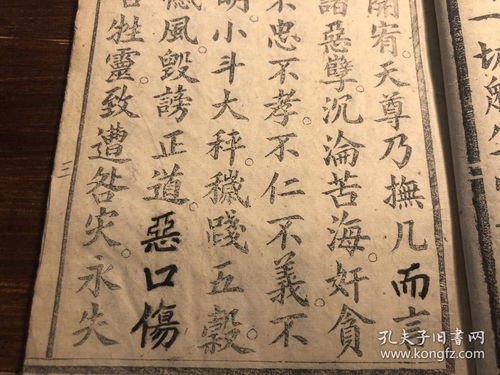 一
開宥。天尊乃撫几而言
諸惡孽沉淪苦海。奸貪
不忠不孝不仁不義。不
明小斗大秤。穢踐五穀。
風毀謗正道。惡口傷
牲靈致遭咎灾。永失
三
孔夫子旧书网
www.kongfz.com